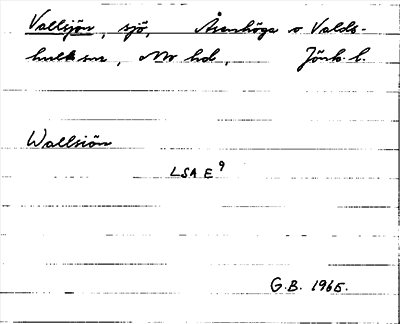 Vallsjön, sjö, Åsenhöga o Valds-
hult snr, Mo hd, Jönk. l.
Wallsiön
LSA E 9
G.B. 1965.